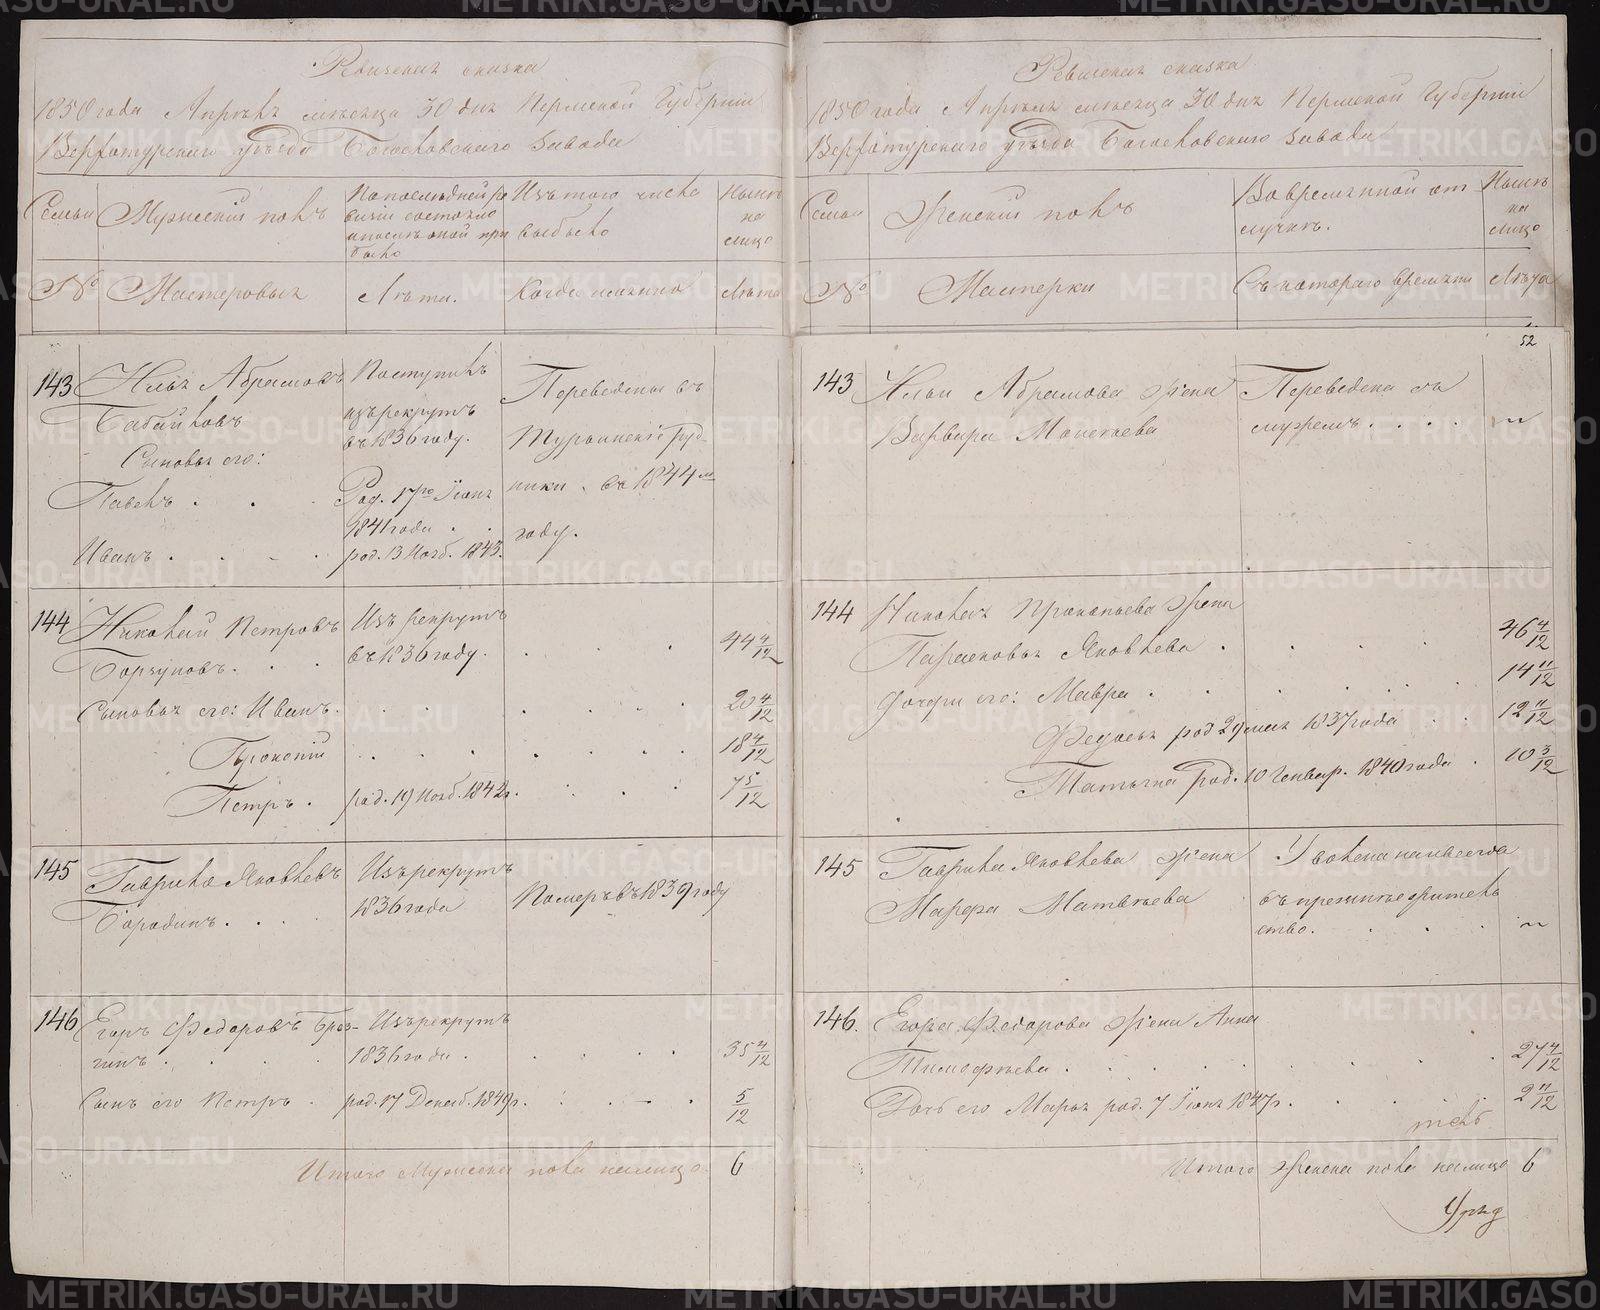 Ревизская сказка
1850 года Апреля месяца 30 дня Пермской Губернии
Верхотурскаго уезда Богословскаго завода
Семьи
Мужеский полъ
По последней ре
визии состояло
и после оной при
было
Изъ того числа
выбыло
Ныне
на
лицо
№
Мастеровыя
Лета.
Когда имянно
Лета
143
Илья Абрамовъ
Бабайловъ
Сыновья его:
Павелъ . . .
Иванъ . . . .
Поступилъ
изъ рекрутъ
въ 1836 году.
Род. 17го Iюня
1841 года . .
род. 13 Нояб. 1843.
Переведены въ
Турьинскiе Руд-
ники . въ 1844 м
году.
144
Николай Петровъ
Борзуновъ. . .
Изъ рекрутъ
въ 1836 году. . . . .
44 4/12
Сыновья его: Иванъ. . . . . . . .
20 4/12
Прокопiй . . . . . . .
18 4/12
Петръ . род. 19 Нояб. 1842 г. . . .
7 5/12
145
Гаврила Яковлевъ
Бородинъ. . .
Изъ рекрутъ
1836 года
Померъ въ 1839 году
146
Егоръ Федоровъ Брез-
гинъ . . .
Изъ рекрутъ
1836 года . . . . .
35 4/12
Сынъ его Петръ . род. 17 Декаб. 1849 г. . . .
5/12
Итого Мужеска пола налицо
6
Ревизская сказка
1850 года Апреля месяца 30 дня Пермской Губернии
Верхотурскаго уезда Богословскаго завода
Семьи
Женский полъ
Во временной от
лучке.
Ныне
на
лицо
№
Мастерки
Съ котораго времени
Лета
52
143
Ильи Абрамова жена
Варвара Моисеева
Переведена съ
мужемъ . . . .
"
144
Николая Прокопьева жена
Парасковья Яковлева . . . .
46 4/12
Дочери его: Мавра . . . . . .
14 11/12
Федосья род 29 мая 1837 года . .
12 11/12
Татьяна род. 10 Генвар. 1840 года .
10 3/12
145
Гаврила Яковлева жена
Марфа Матвеева
Уволена навсегда
въ прежнее жител
ство. . . .
"
146.
Егора Федорова жена Анна
Тимофеева . . . . . . .
27 4/12
Дочь его Марья род. 7 Iюня 1847 г. . . .
2 11/12
Итого Женска пола налицо
6